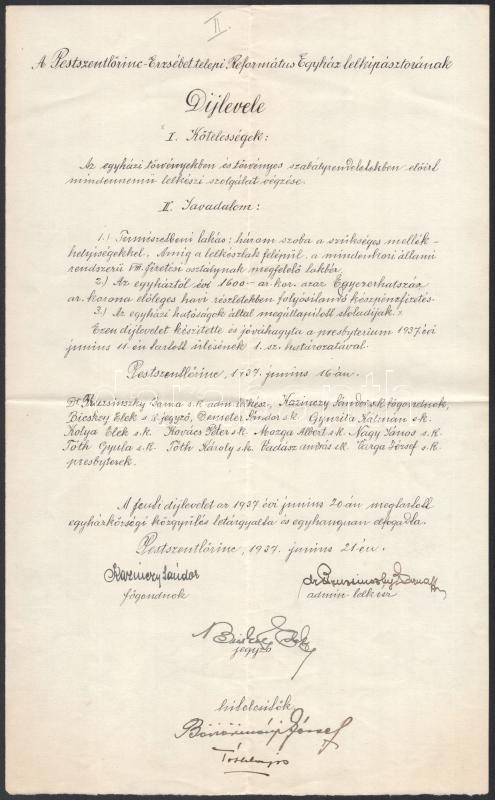 II.
A Pestszentlőrinc-Erzsébet telepi Református Egyház lelkipásztorának
Díjlevele
I. Kötelességek:
Az egyházi törvényekben és törvényes szabályrendeletekben előírt
mindennemű lelkészi szolgálat végzése.
II. Javadalom:
1.) Természetbeni lakás: három szoba a szükséges mellék-
helyiségekkel. Amíg a lelkészlak felépül, a mindenkori állami
rendszerű VIII. fizetési osztálynak megfelelő lakbér.
2.) Az egyháztól évi 1600 - ar. kor. azaz Egyezerhatszáz
ar. korona előleges havi részletekben folyósítandó készpénzfizetés.
3.) Az egyházi hatóságok által megállapított stóladíjak.
Ezen díjlevelet készítette és jóváhagyta a presbyterium 1937. évi
június 11-én tartott ülésének 1. sz. határozatával.
Pestszentlőrinc, 1937. június 16-án.
Dr. Barna s.k. adm. lelkész, Kazinczy Sándor s.k. főgondnok,
Bicskey Elek s.k. jegyző, Sándor s.k. Kálmán s.k.
Kotya Elek s.k. Kovács Péter s.k. Mozga Albert s.k. Nagy János s.k.
Tóth Gyula s.k. Tóth Károly s.k. Vadász András s.k. Varga József s.k.
presbyterek.
A fenti díjlevelet az 1937. évi június 20-án megtartott
egyházközségi közgyűlés letárgyalta és egyhangúan elfogadta.
Pestszentlőrinc, 1937. június 21-én.
Kazinczy Sándor
főgondnok
admin. lelkész
jegyző
hitelesítők
Böszörményi József